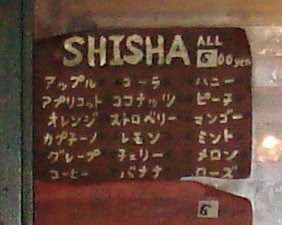 SHISHA ALL 600yen
アップル コーラ ハニー
アプリコット ココナッツ ピーチ
オレンジ ストロベリー マンゴー
カプチーノ レモン ミント
グレープ チェリー メロン
コーヒー バナナ ローズ
6